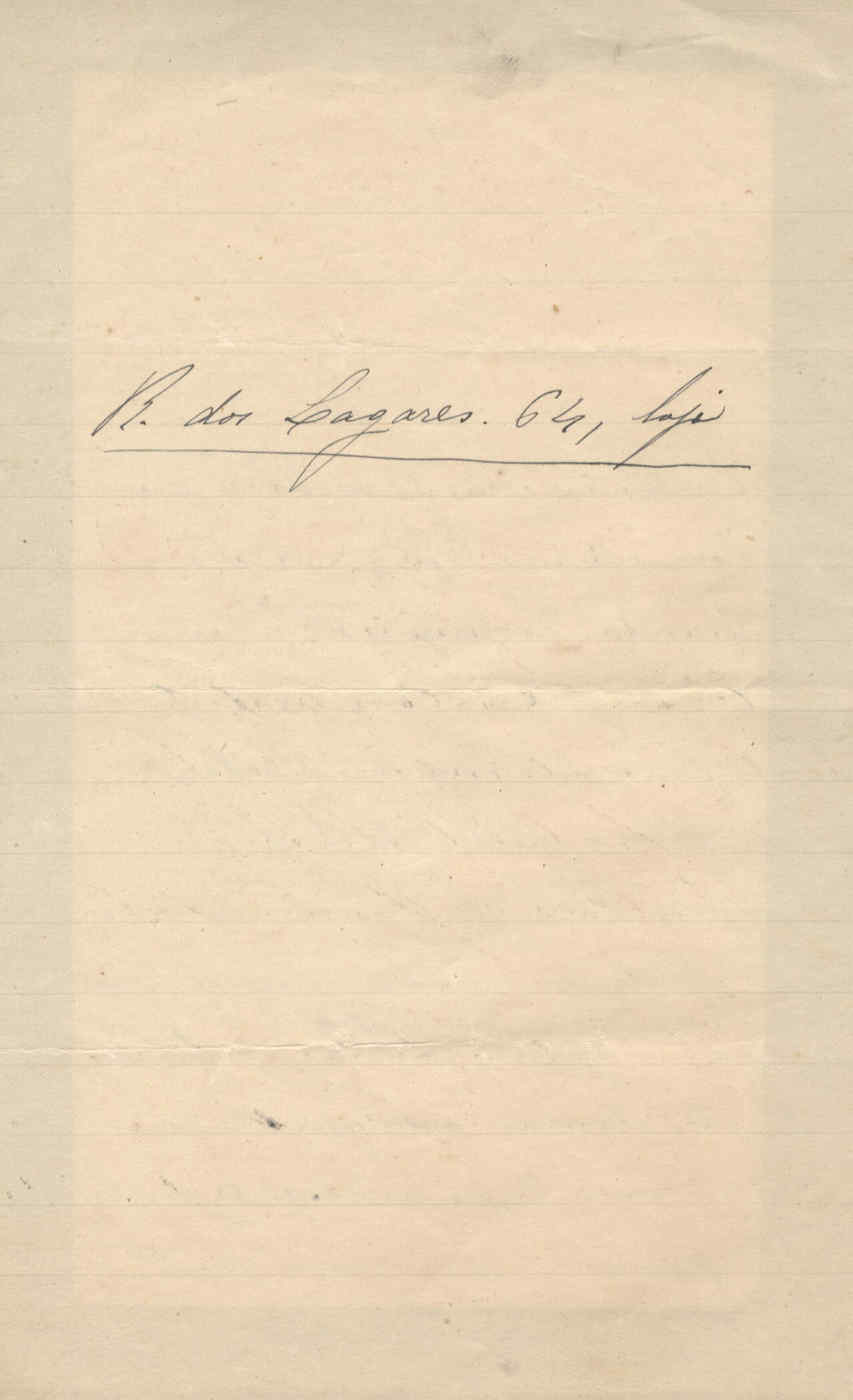 R. dos Lagares. 64, loja